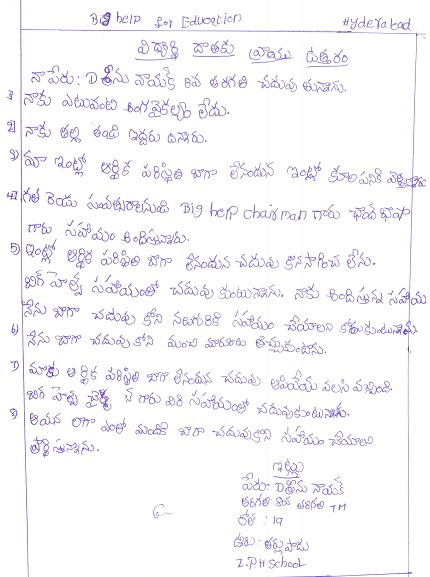 Big help for Education Hyderabad
విద్యార్థి దాతకు వ్రాయు ఉత్తరం
నా పేరు: D శ్రీను నాయక్ 8వ తరగతి చదువుతున్నాను.
1 నాకు ఎటువంటి అంగవైకల్యం లేదు.
2) నాకు తల్లి తండ్రి ఇద్దరు ఉన్నారు.
3) మా ఇంట్లో ఆర్థిక పరిస్థితి బాగా లేనందున ఇంట్లో కూలి పనికి వెళ్తున్నారు
4) గత రెండు సంవత్సరాలనుండి Big help chairman గారు చాంద్ భాషా
గారు సహాయం అందిస్తున్నారు.
5) ఇంట్లో ఆర్థిక పరిస్థితి బాగా లేనందున చదువు కొనసాగించ లేను.
బిగ్ హెల్ప్ సహాయంతో చదువు కుంటున్నాను. నాకు అందిస్తున్న సహాయ
నేను బాగా చదువు కొని నలుగురికి సహాయం చేయాలని కోరుకుంటున్నాను
6) నేను బాగా చదువు కొని మంచి మార్కులు తెచ్చుకుంటాను.
7) మాకు ఆర్థిక పరిస్థితి బాగా లేనందున చదువు ఆపివేయ వలసి వచ్చింది.
బిగ్ హెల్ప్ గారు సహాయంతో చదువుకుంటున్నాను.
8) ఆయన లాగా ఎంతో మందికి బాగా చదువుకొని సహాయం చేయాలని
ప్రార్థిస్తున్నాను.
ఇట్లు
పేరు: D శ్రీను నాయక్
తరగతి: 8వ తరగతి TM
రోల్ : 19
ఊరు: తర్లుపాడు
Z.P.H School